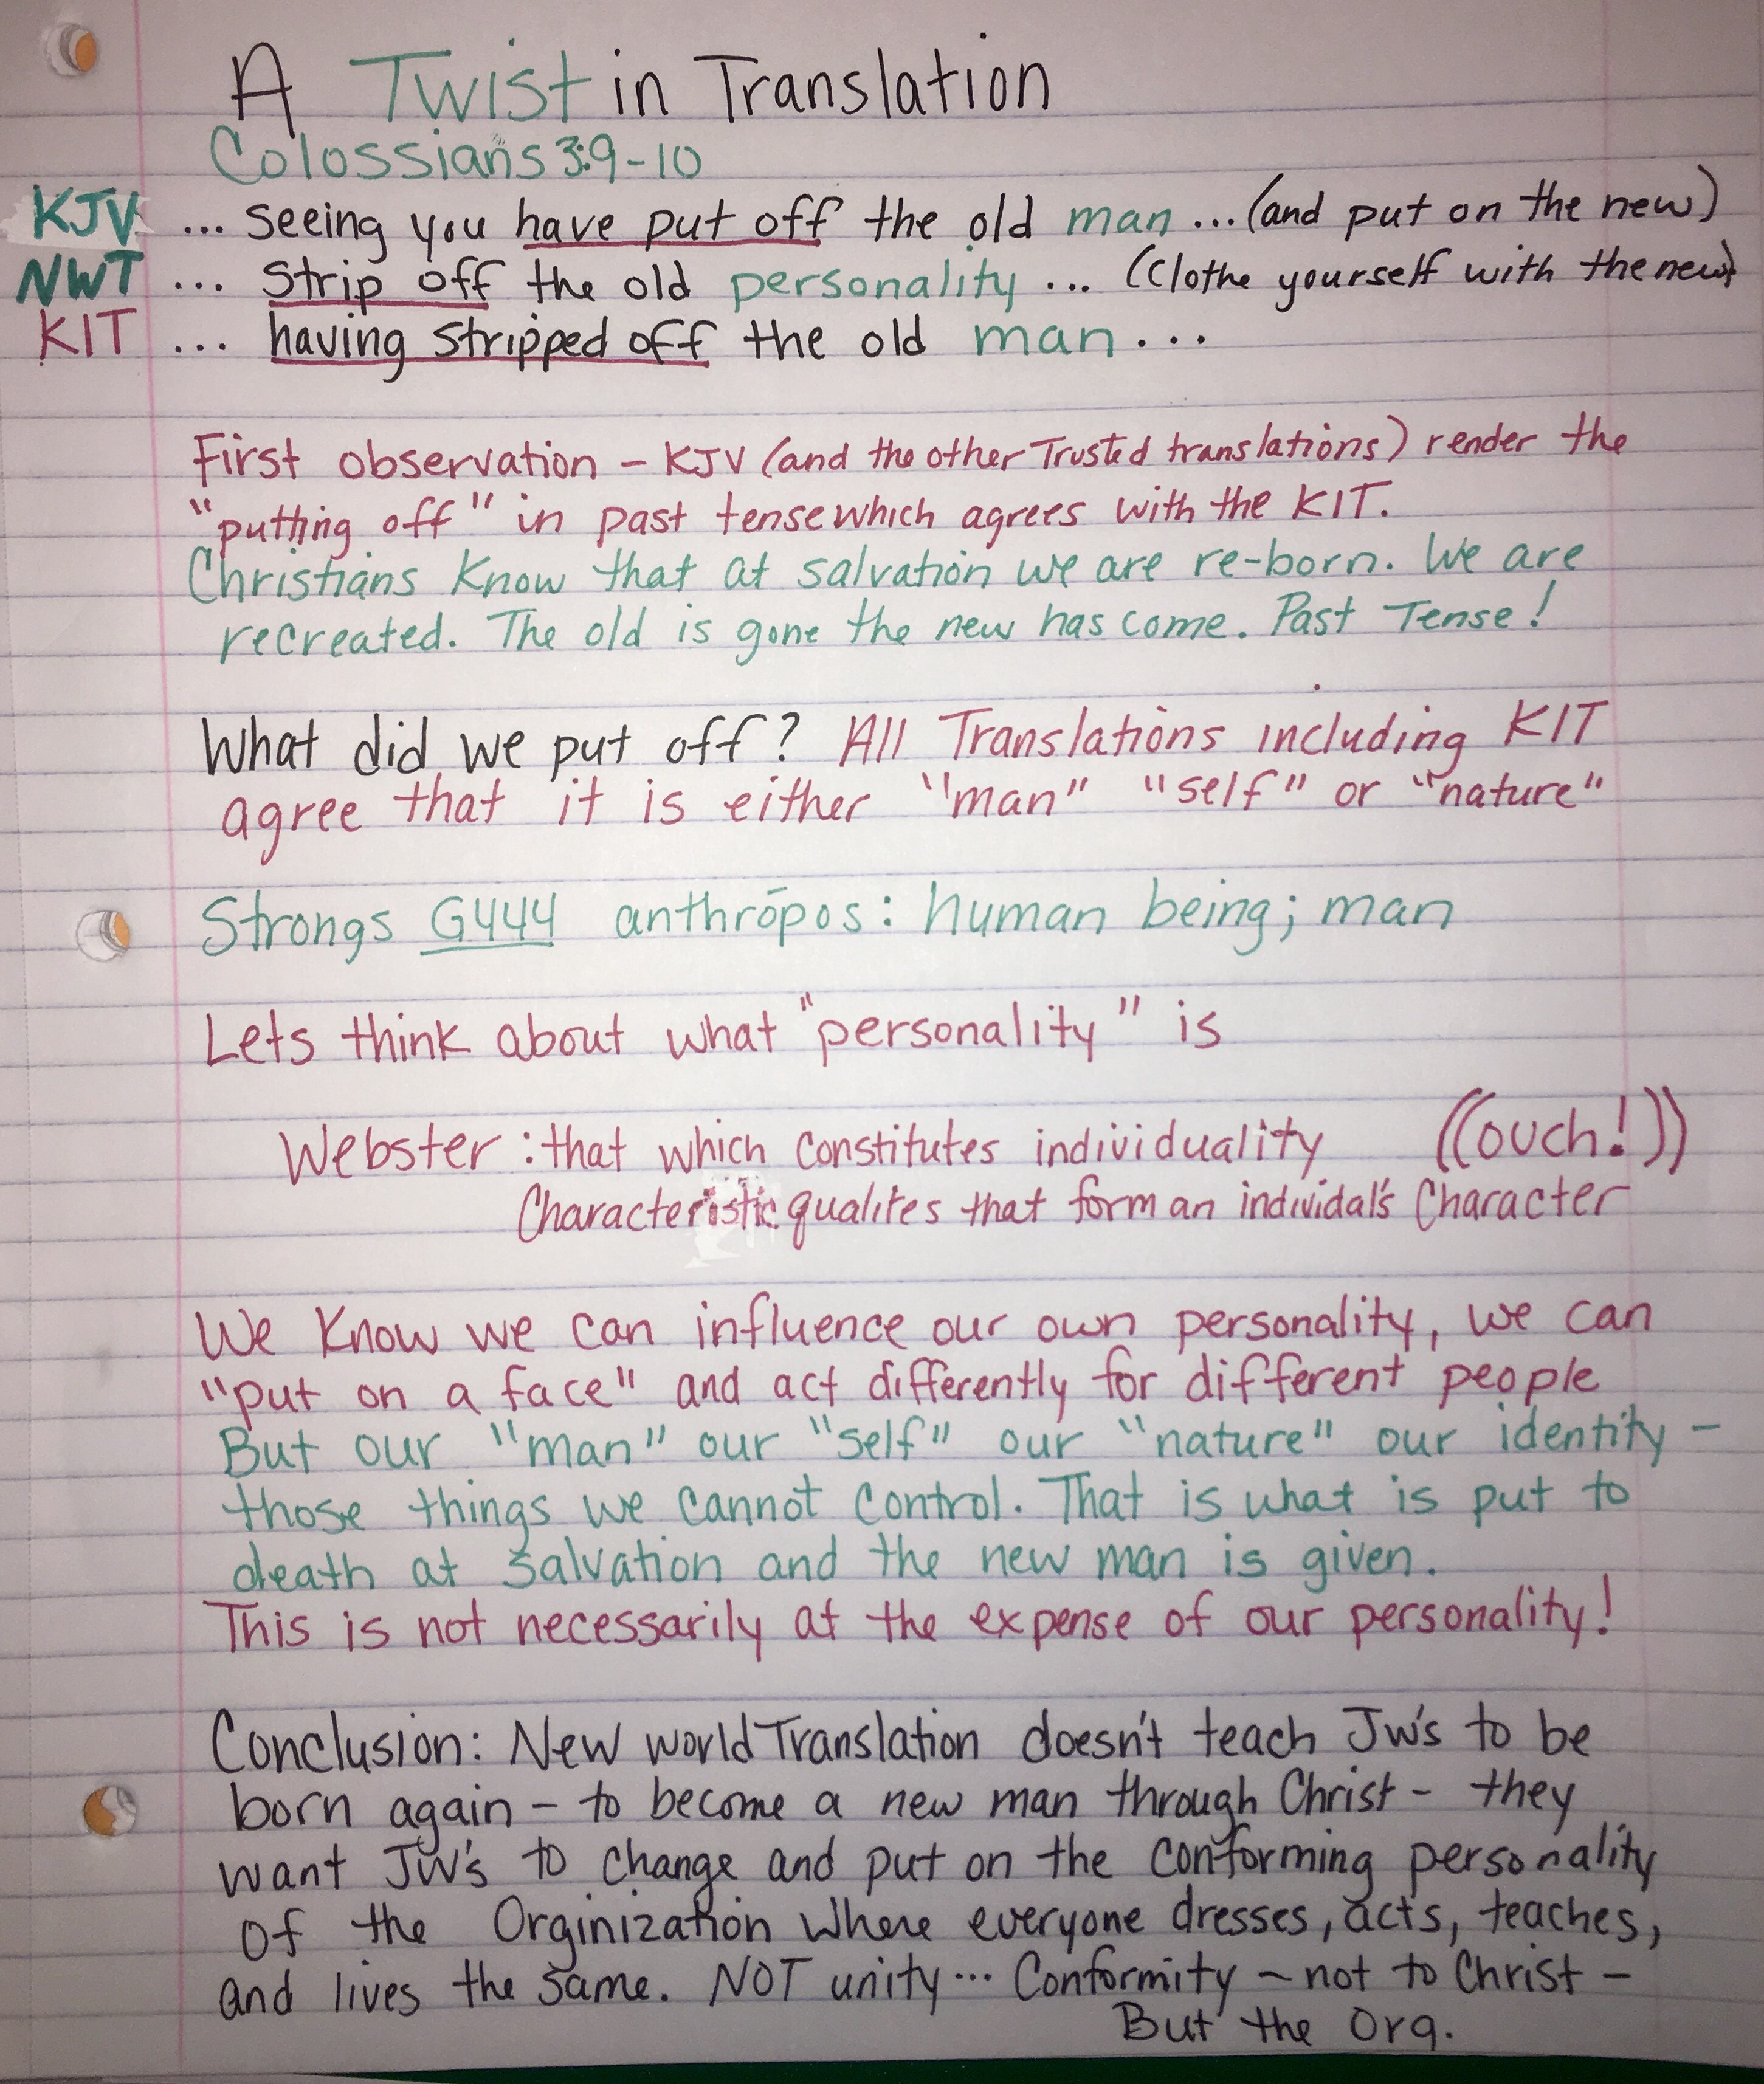 A Twist in Translation
Colossians 3:9-10
KJV ... seeing you have put off the old man ... (and put on the new)
NWT ... Strip off the old personality ... (Clothe yourself with the new)
KIT ... having stripped off the old man ...
First observation - KJV (and the other Trusted translations) render the
"putting off" in past tense which agrees with the KIT.
Christians know that at salvation we are re-born. We are
recreated. The old is gone the new has come. Past Tense!
What did we put off? All Translations including KIT
agree that it is either "man" "self" or "nature"
Strongs G444 anthrōpos: human being; man
Lets think about what "personality" is
Webster: that which constitutes individuality ((ouch!))
Characteristic qualites that form an individal's Character
We know we can influence our own personality, we can
"put on a face" and act differently for different people
But our "man" our "self" our "nature" our identity -
those things we cannot control. That is what is put to
death at salvation and the new man is given.
This is not necessarily at the expense of our personality!
Conclusion: New world Translation doesn't teach JW's to be
born again - to become a new man through Christ - they
want JW's to change and put on the conforming personality
of the Orginization where everyone dresses, acts, teaches,
and lives the same. NOT unity... Conformity - not to Christ -
But the Org.